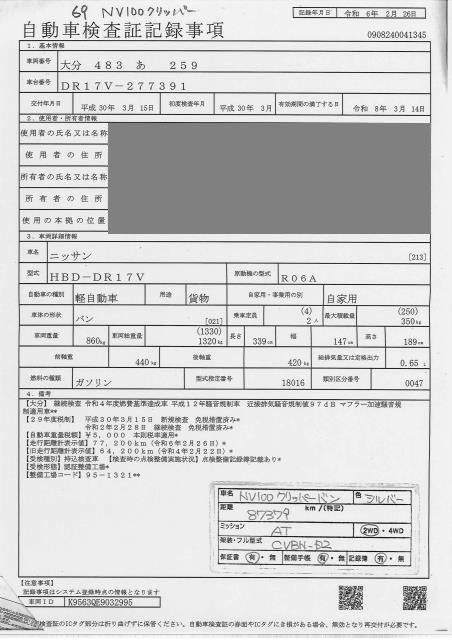 69 NV100クリッパー
記録年月日 令和 6年 2月 26日
自動車検査証記録事項
0908240041345
1．基本情報
車両番号 大分 483 あ 259
車台番号 DR17V-277391
交付年月日 平成30年 3月 15日 初度検査年月 平成 30年 3月 有効期間の満了する日 令和 8年 3月 14日
2．使用者・所有者情報
使用者の氏名又は名称
使用者の住所
所有者の氏名又は名称
所有者の住所
使用の本拠の位置
3．車両詳細情報
車名 ニッサン [213]
型式 HBD-DR17V 原動機の型式 R06A
自動車の種別 軽自動車 用途 貨物 自家用・事業用の別 自家用
車体の形状 バン [021] 乗車定員 (4) 2人 最大積載量 (250) 350kg
車両重量 860kg 車両総重量 (1330) 1320kg 長さ 339cm 幅 147cm 高さ 189cm
前軸重 440kg 後軸重 420kg 総排気量又は定格出力 0.65 L
燃料の種類 ガソリン 型式指定番号 18016 類別区分番号 0047
4．備考
【大分】 継続検査 令和4年度燃費基準達成車 平成12年騒音規制車 近接排気騒音規制値97dB マフラー加速騒音規
制適用車**
【29年度税制】 平成30年3月15日 新規検査 免税措置済み*
令和2年2月28日 継続検査 免税措置済み*
【自動車重量税額】¥5,000 本則税率適用*
【走行距離計表示値】77,200km(令和6年2月26日)*
【旧走行距離計表示値】64,200km(令和4年2月22日)*
【受検種別】持込検査車 【検査時の点検整備実施状況】点検整備記録簿記載あり*
【受検形態】認証整備工場*
【整備工場コード】95-1321**
車名 NV100クリッパーバン 色 シルバー
距離 87379 km/(特記)
ミッション AT 2WD・4WD
架装・フル型式
保証書 有・無 整備手帳 有・無 記録簿 有・無
【注意事項】
記録事項はシステム登録時点の情報となります
車両ID K9563QE9032995
検査証のICタグ部分は折り曲げずに保管ください。自動車検査証の券面やICタグにき損がある場合、無効となり再交付が必要です。